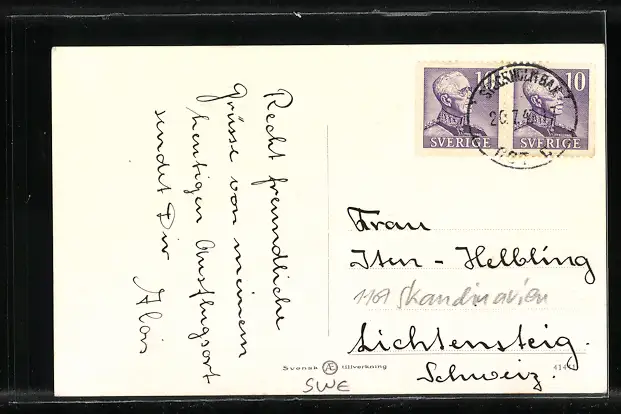 Recht freundliche
Grüsse von meinem
heutigen Ausflugsort
sendet Dir
Alois
10
SVERIGE
10
SVERIGE
Frau
Iten - Helbling
1101 Skandinavien
Lichtensteig.
Schweiz.
Svensk Æ tillverkning
SWE